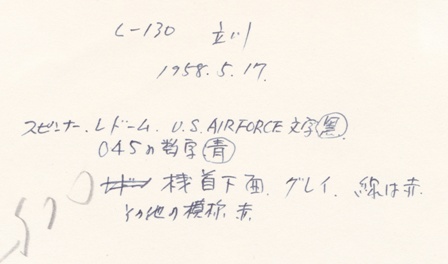 C-130 立川
1958.5.17.
スピンナー. レドーム. U.S.AIRFORCE文字黒.
045の数字青
機首下面. グレイ. 線は赤.
その他の模様. 赤.